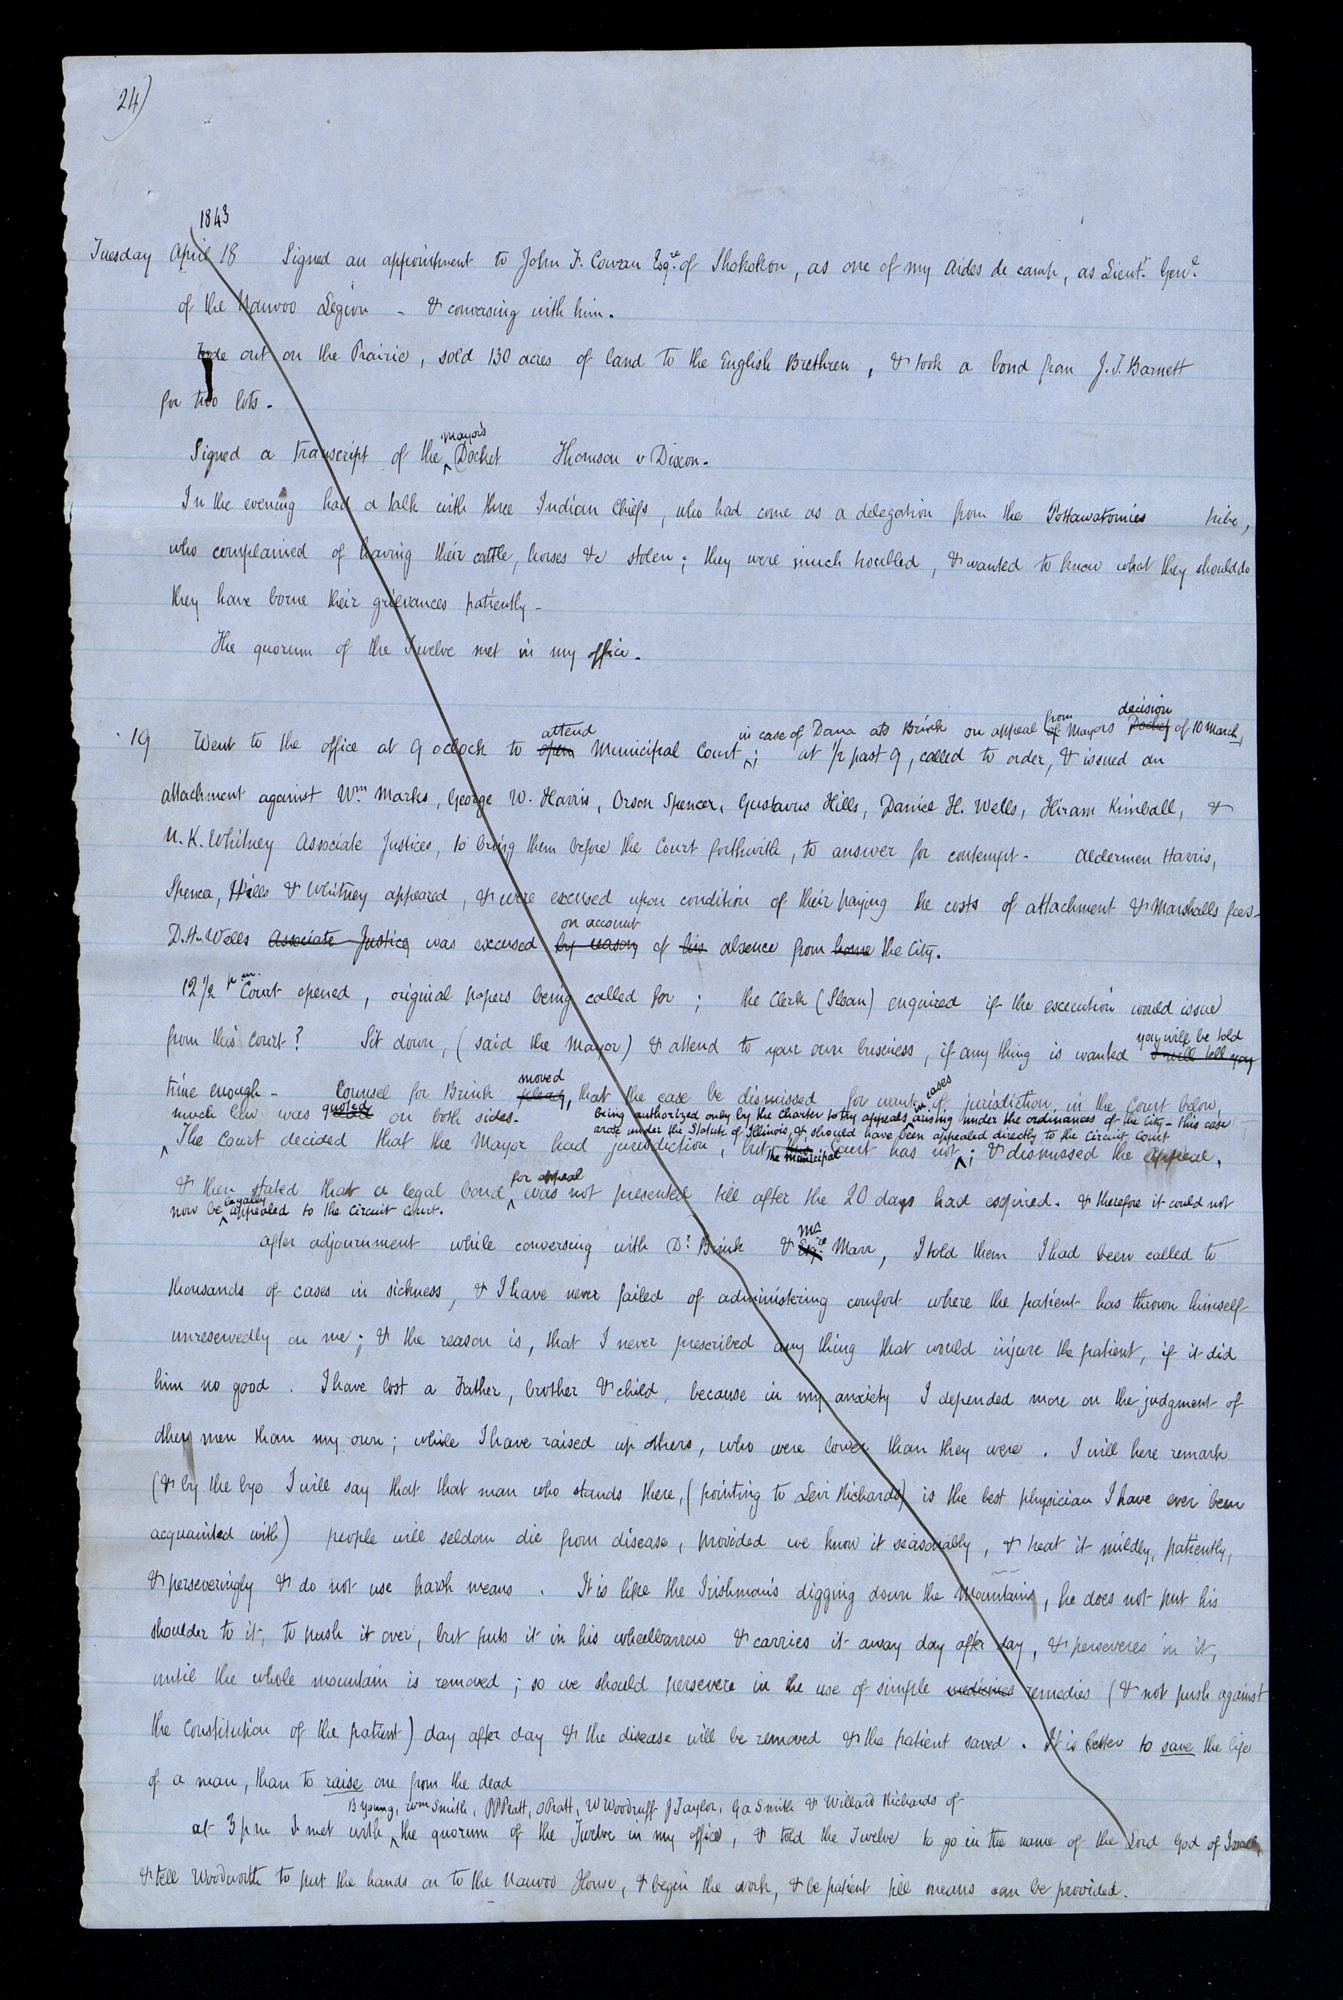 24)
1843
Tuesday April 18 Signed an appointment to John F. Cowan Esqre. of Shokokon, as one of my Aides de camp, as Lieut. Genl.
of the Nauvoo Legion - & conversing with him.
Rode out on the Prairie, sold 130 acres of land to the English Brethren, & took a bond from J. T. Barnett
for two lots -
mayor's
Signed a transcript of the Docket Thomson v Dixon.
In the evening had a talk with three Indian Chiefs, who had come as a delegation from the Pottawatomies tribe,
who complained of having their cattle, horses &c stolen; they were much troubled, & wanted to know what they should do
they have borne their grievances patiently -
The quorum of the Twelve met in my office.
attend in case of Dana ats Brink on appeal from of Mayors decision Docket of 10 March,
19 Went to the office at 9 oclock to open Municipal Court ; at 1/2 past 9, called to order, & issued an
attachment against Wm Marks, George W. Harris, Orson Spencer, Gustavus Hills, Daniel H. Wells, Hiram Kimball, &
N. K. Whitney Associate Justices, to bring them before the Court forthwith, to answer for contempt - Aldermen Harris,
Spencer, Hills & Whitney appeared, & were excused upon condition of their paying the costs of attachment & Marshalls fees -
on account
D. H. Wells Associate Justice was excused by reason of his absence from home the City.
12 1/2 p.m. Court opened, original papers being called for; the Clerk (Sloan) enquired if the execution would issue
you will be told
from this court? Sit down, (said the Mayor) & attend to your own business, if any thing is wanted I will tell you
moved
time enough - Counsel for Brink plead, that the case be dismissed for want of jurisdiction in the Court below,
much law was quoted on both sides. being authorized only by the charter to try appeals in cases arising under the ordinances of the City - this case
arose under the Statute of Illinois, & should have been appealed directly to the Circuit Court
The Court decided that the Mayor had jurisdiction, but the municipal Court has not; & dismissed the Appeal,
for appeal
& then stated that a legal bond was not presented till after the 20 days had expired. & therefore it could not
now be legally appealed to the Circuit Court.
Mr
after adjournment while conversing with Dr. Brink & Esqre Marr, I told them I had been called to
thousands of cases in sickness, & I have never failed of administering comfort where the patient has thrown himself
unreservedly on me; & the reason is, that I never prescribed any thing that would injure the patient, if it did
him no good. I have lost a Father, brother & child, because in my anxiety I depended more on the judgment of
other men than my own; while I have raised up others, who were lower than they were. I will here remark
(& by the bye I will say that that man who stands there, (pointing to Levi Richards) is the best physician I have ever been
acquainted with) people will seldom die from disease, provided we know it seasonably, & treat it mildly, patiently,
& perseveringly & do not use harsh means. It is like the Irishman's digging down the Mountains, he does not put his
shoulder to it, to push it over, but puts it in his wheelbarrow & carries it away day after day, & perseveres in it,
until the whole mountain is removed; so we should persevere in the use of simple medicines remedies (& not push against
the constitution of the patient) day after day & the disease will be removed & the patient saved. It is better to save the life
of a man, than to raise one from the dead
B Young, Wm Smith, P P Pratt, O Pratt, W Woodruff J Taylor, G A Smith & Willard Richards of
at 3 p m I met with the quorum of the Twelve in my office, & told the Twelve to go in the name of the Lord God of Israel,
& tell Woodworth to put the hands on to the Nauvoo House, & begin the work, & be patient till means can be provided.